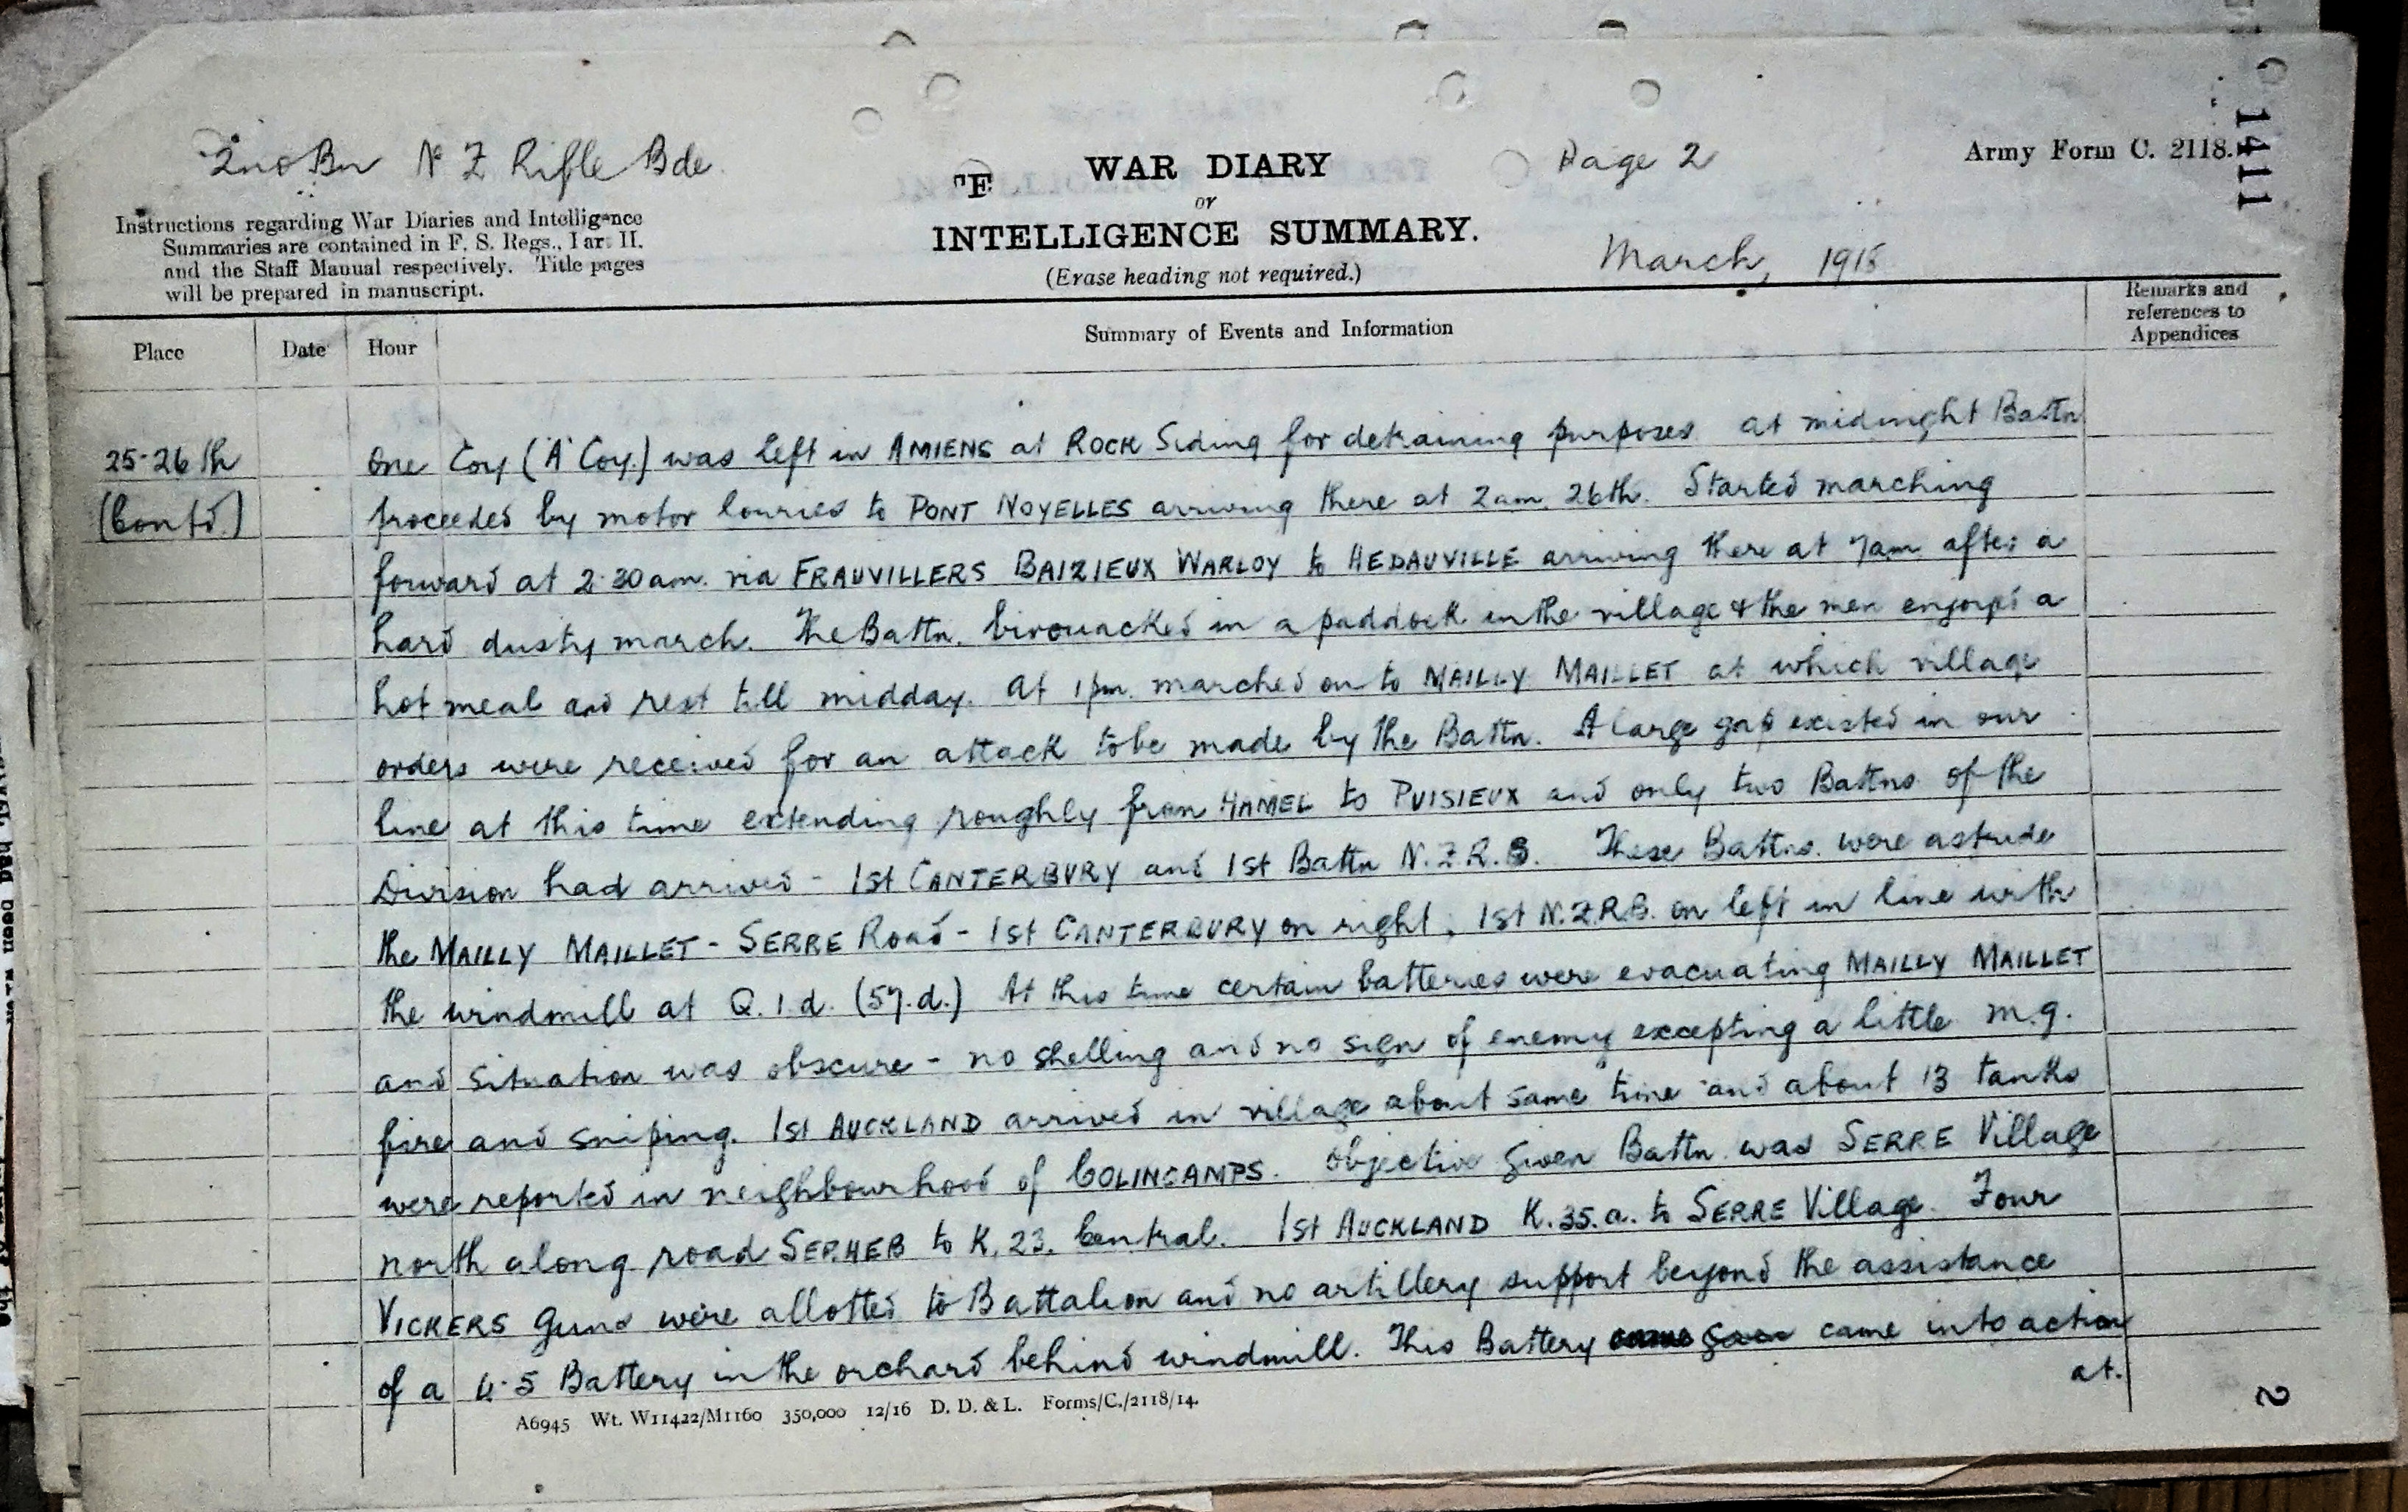 2nd Bn N Z Rifle Bde.
WAR DIARY
Page 2
Army Form C. 2118.
1411
or
Instructions regarding War Diaries and Intelligence
Summaries are contained in F. S. Regs., Part II.
and the Staff Manual respectively. Title pages
will be prepared in manuscript.
INTELLIGENCE SUMMARY.
(Erase heading not required.)
March, 1918
Place
Date
Hour
Summary of Events and Information
Remarks and
references to
Appendices
25-26th
(Contd.)
One Coy ('A' Coy.) was left in AMIENS at ROCK Siding for detraining purposes. at midnight Battn
proceeded by motor lourries to PONT NOYELLES arriving there at 2am. 26th. Started marching
forward at 2.30am. via FRAUVILLERS BAIZIEUX WARLOY to HEDAUVILLE arriving there at 7am after a
hard dusty march. The Battn. bivouacked in a paddock in the village & the men enjoyed a
hot meal and rest till midday. At 1pm. marched on to MAILLY MAILLET at which village
orders were received for an attack to be made by the Battn. A large gap existed in our
line at this time extending roughly from HAMEL to PUISIEUX and only two Battns of the
Division had arrived - 1st CANTERBURY and 1st Battn N.Z.R.B. These Battns. were astride
the MAILLY MAILLET - SERRE Road - 1st CANTERBURY on right, 1st N.Z.R.B. on left in line with
the windmill at Q.1.d. (57.d.) At this time certain batteries were evacuating MAILLY MAILLET
and situation was obscure - no shelling and no sign of enemy excepting a little m.g.
fire and sniping. 1st AUCKLAND arrived in village about same time and about 13 tanks
were reported in neighbourhood of COLINCAMPS. Objective given Battn. was SERRE Village
north along road to K.23. Central. 1st AUCKLAND K.35.a. to SERRE Village. Four
VICKERS Guns were allotted to Battalion and no artillery support beyond the assistance
of a 4.5 Battery in the orchard behind windmill. This Battery came into action
at.
A6945 Wt. W11422/M1160 350,000 12/16 D. D. & L. Forms/C./2118/14.
2